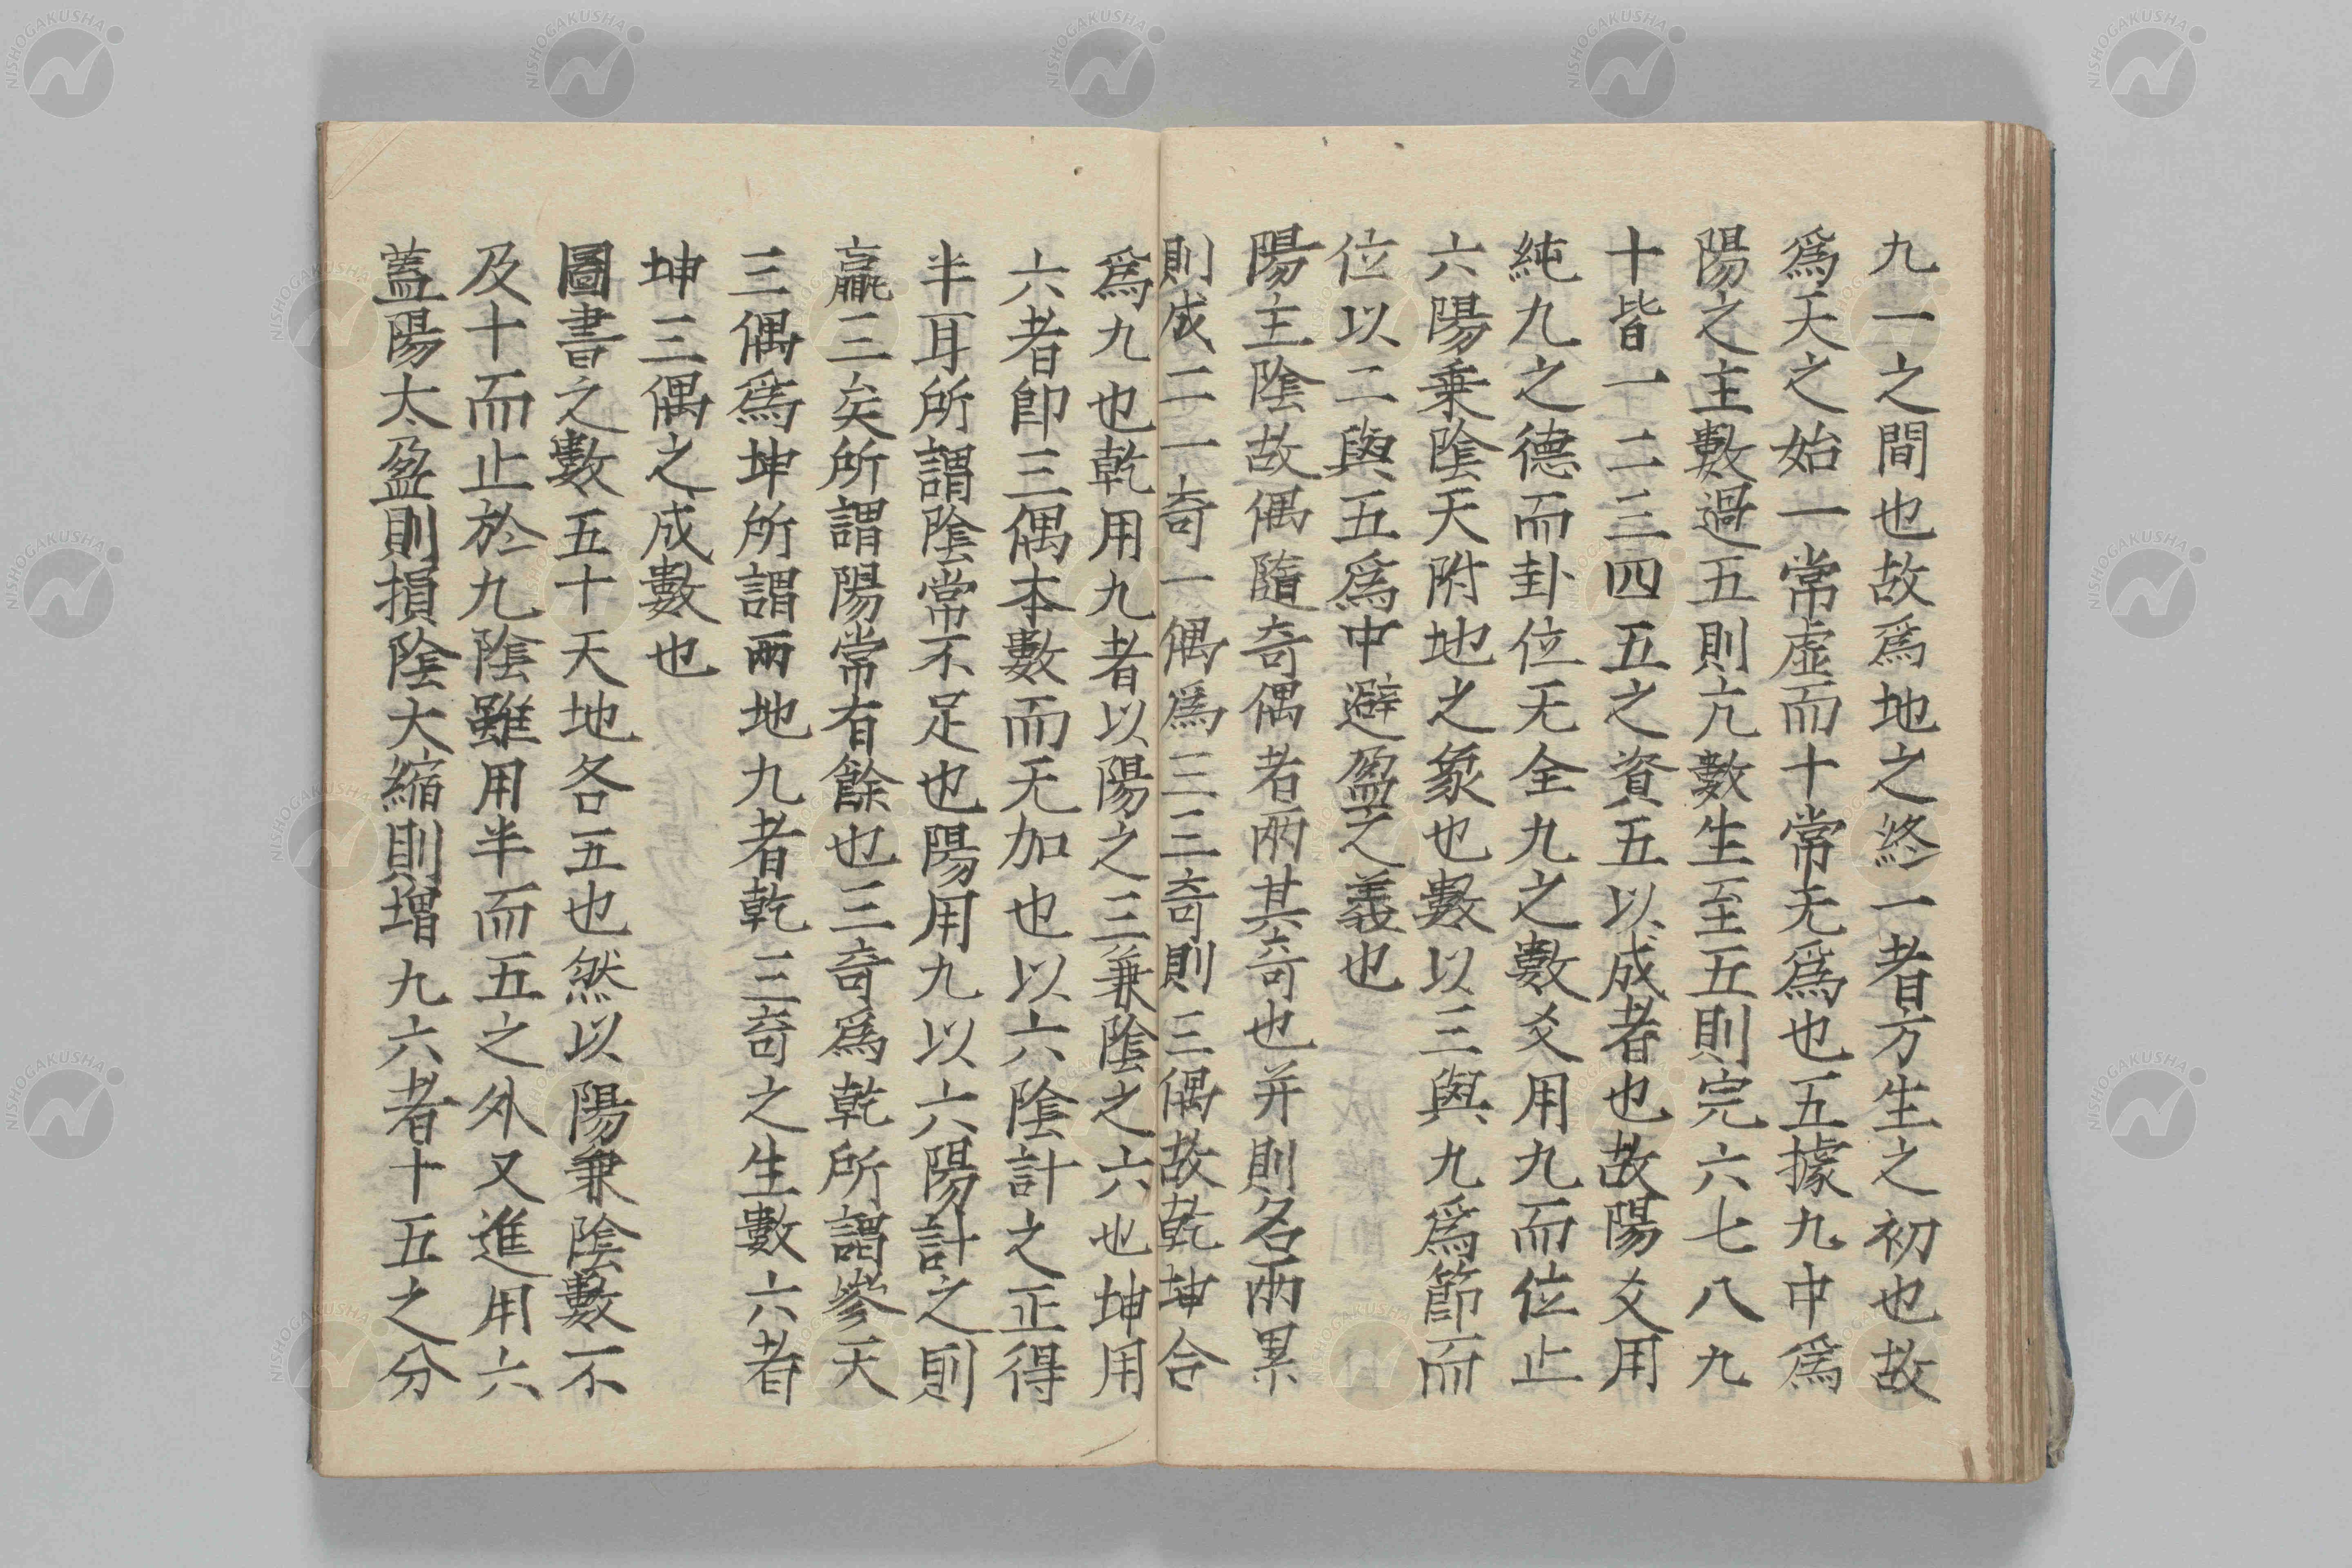 九一之間也故爲地之終一者方生之初也故
爲天之始一常虛而十常无爲也五據九中爲
陽之主數過五則亢數生至五則完六七八九
十皆一二三四五之資五以成者也故陽爻用
純九之德而卦位无全九之數爻用九而位止
六陽乗陰天附地之象也數以三與九爲節而
位以二與五爲中避盈之義也
陽主陰故偶隨奇偶者兩其奇也并則名兩累
則成二一奇一偶爲三三奇則三偶故乾坤合
爲九也乾用九者以陽之三兼陰之六也坤用
六者卽三偶本數而无加也以六陰計之正得
半耳所謂陰常不足也陽用九以六陽計之則
贏三矣所謂陽常有餘也三奇爲乾所謂參天
三偶爲坤所謂兩地九者乾三奇之生數六者
坤三偶之成數也
圖書之數五十天地各五也然以陽兼陰數不
及十而止於九陰雖用半而五之外又進用六
蓋陽太盈則損陰大縮則增九六者十五之分
NISHOGAKUSHA